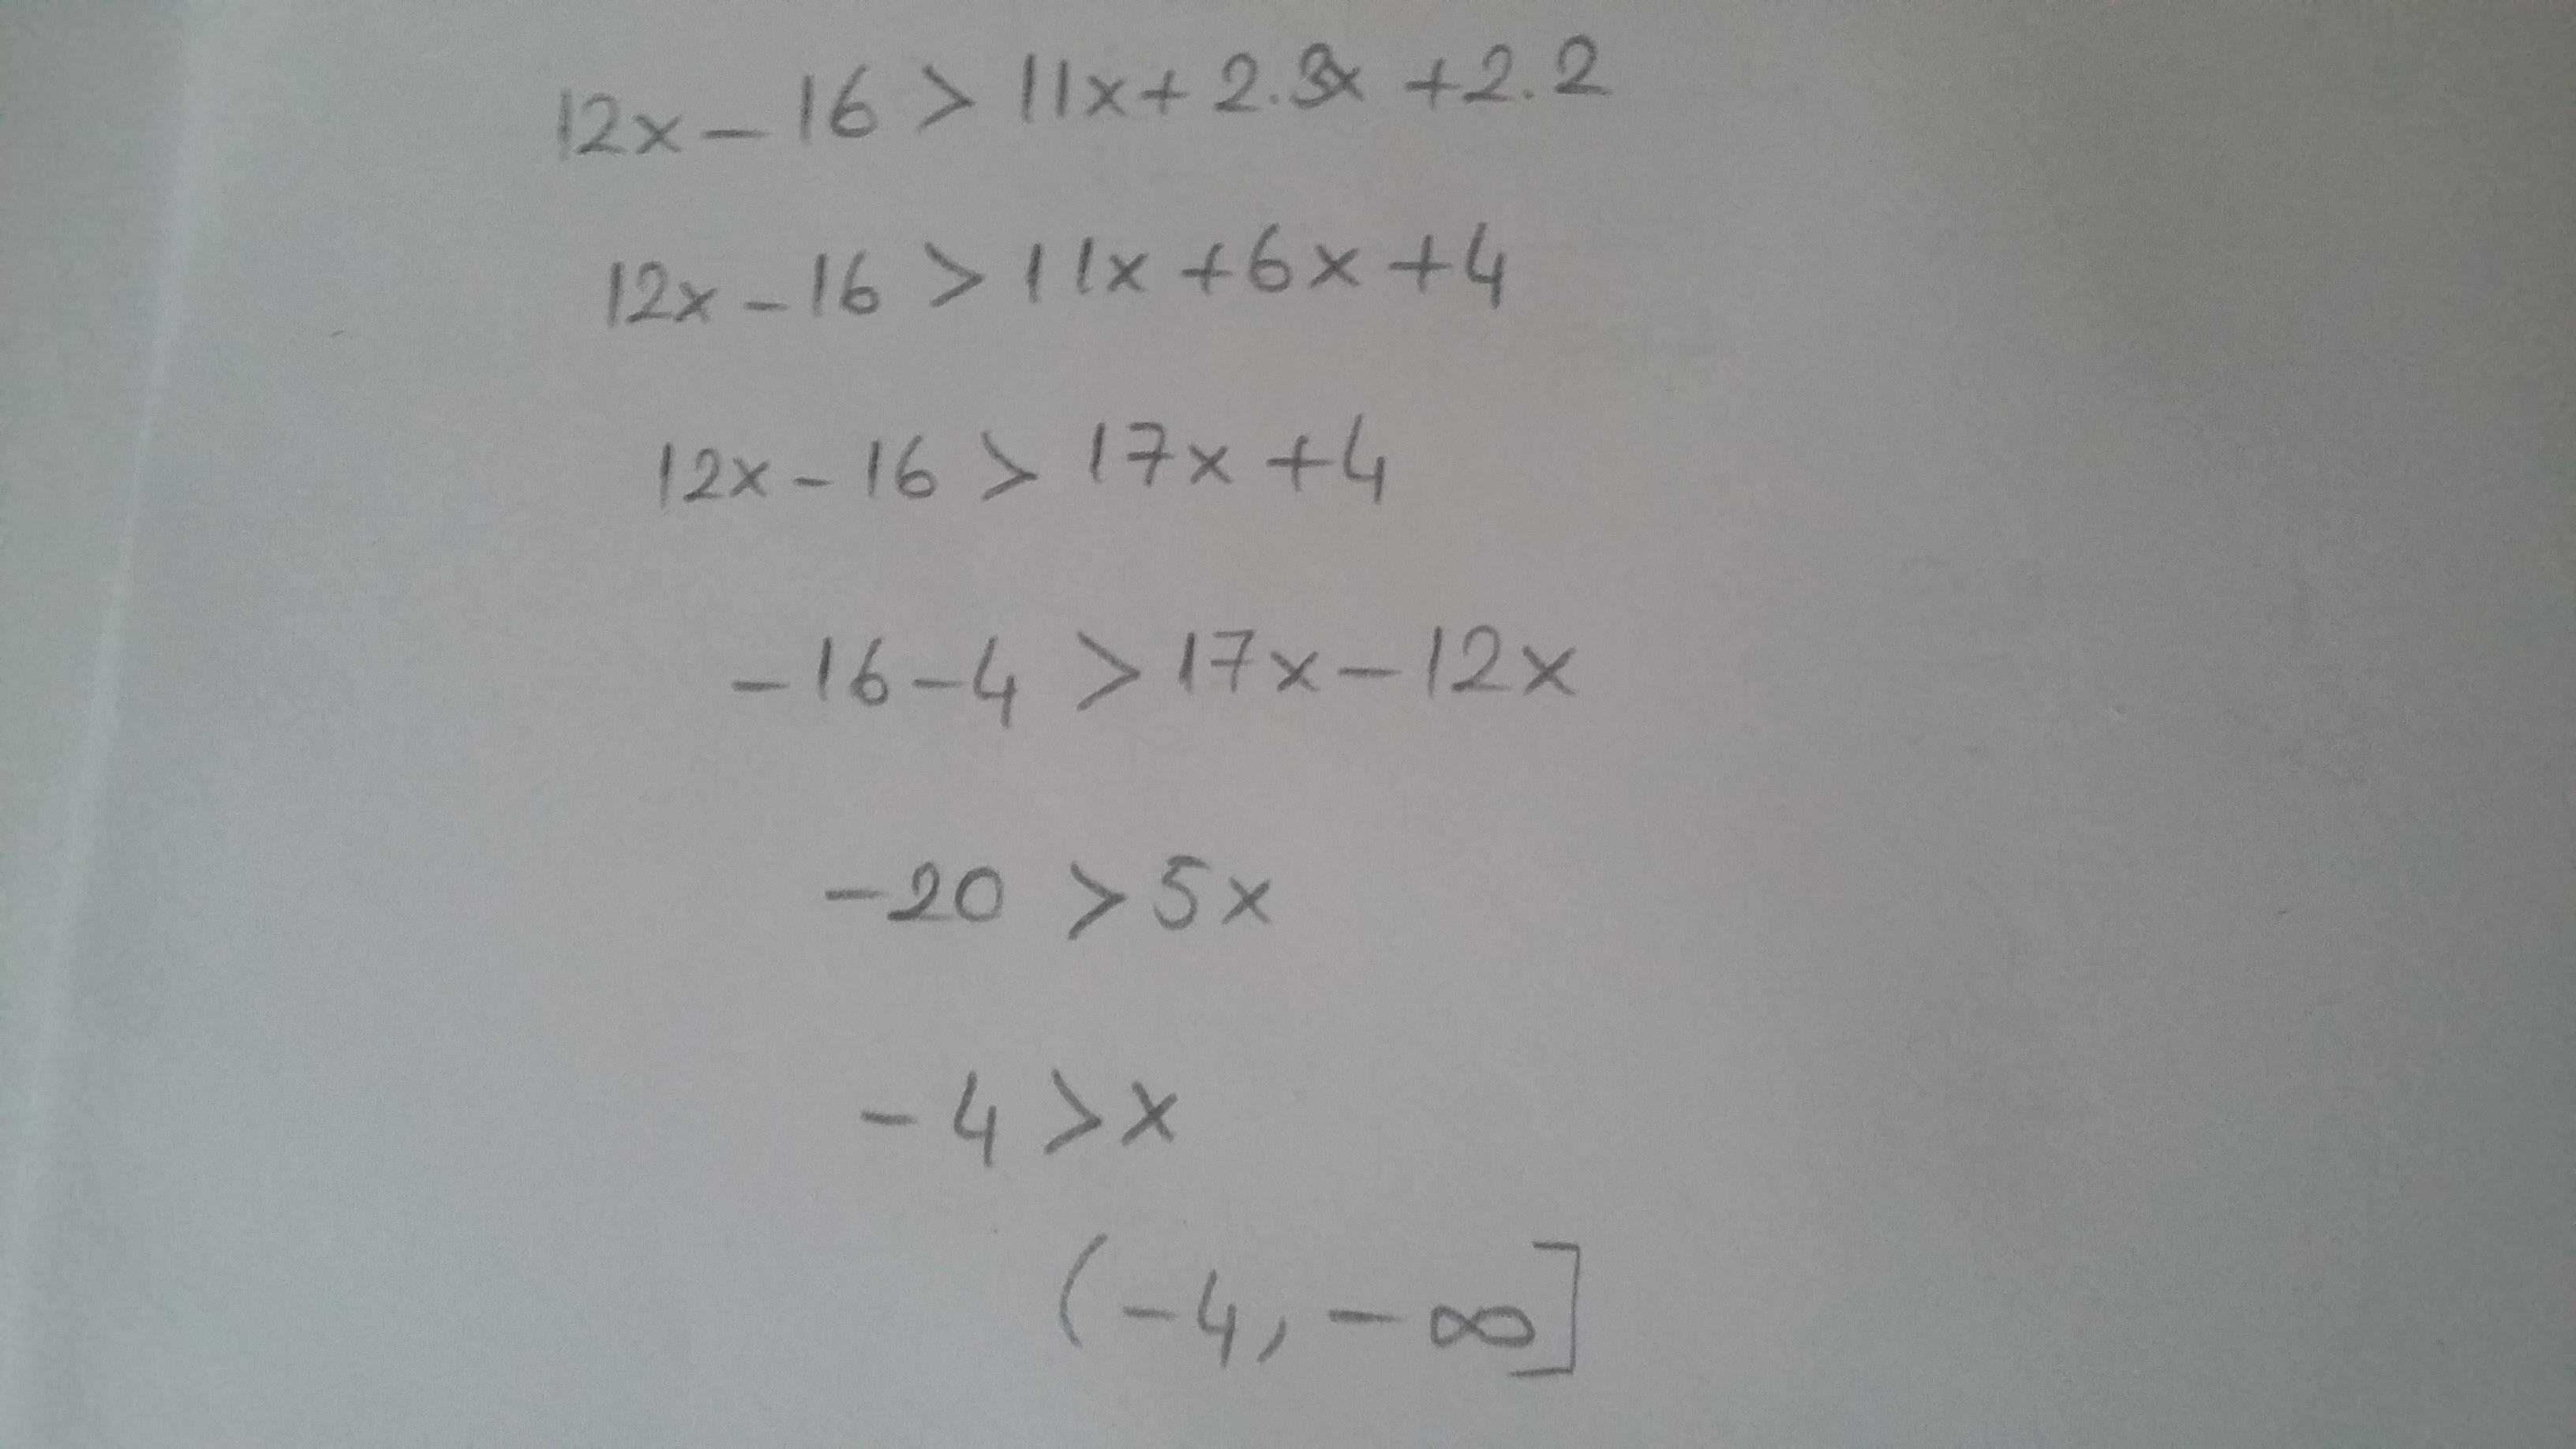 12x - 16 > 11x + 2.3x + 2.2
12x - 16 > 11x + 6x + 4
12x - 16 > 17x + 4
-16 - 4 > 17x - 12x
-20 > 5x
-4 > x
(-4, -∞]